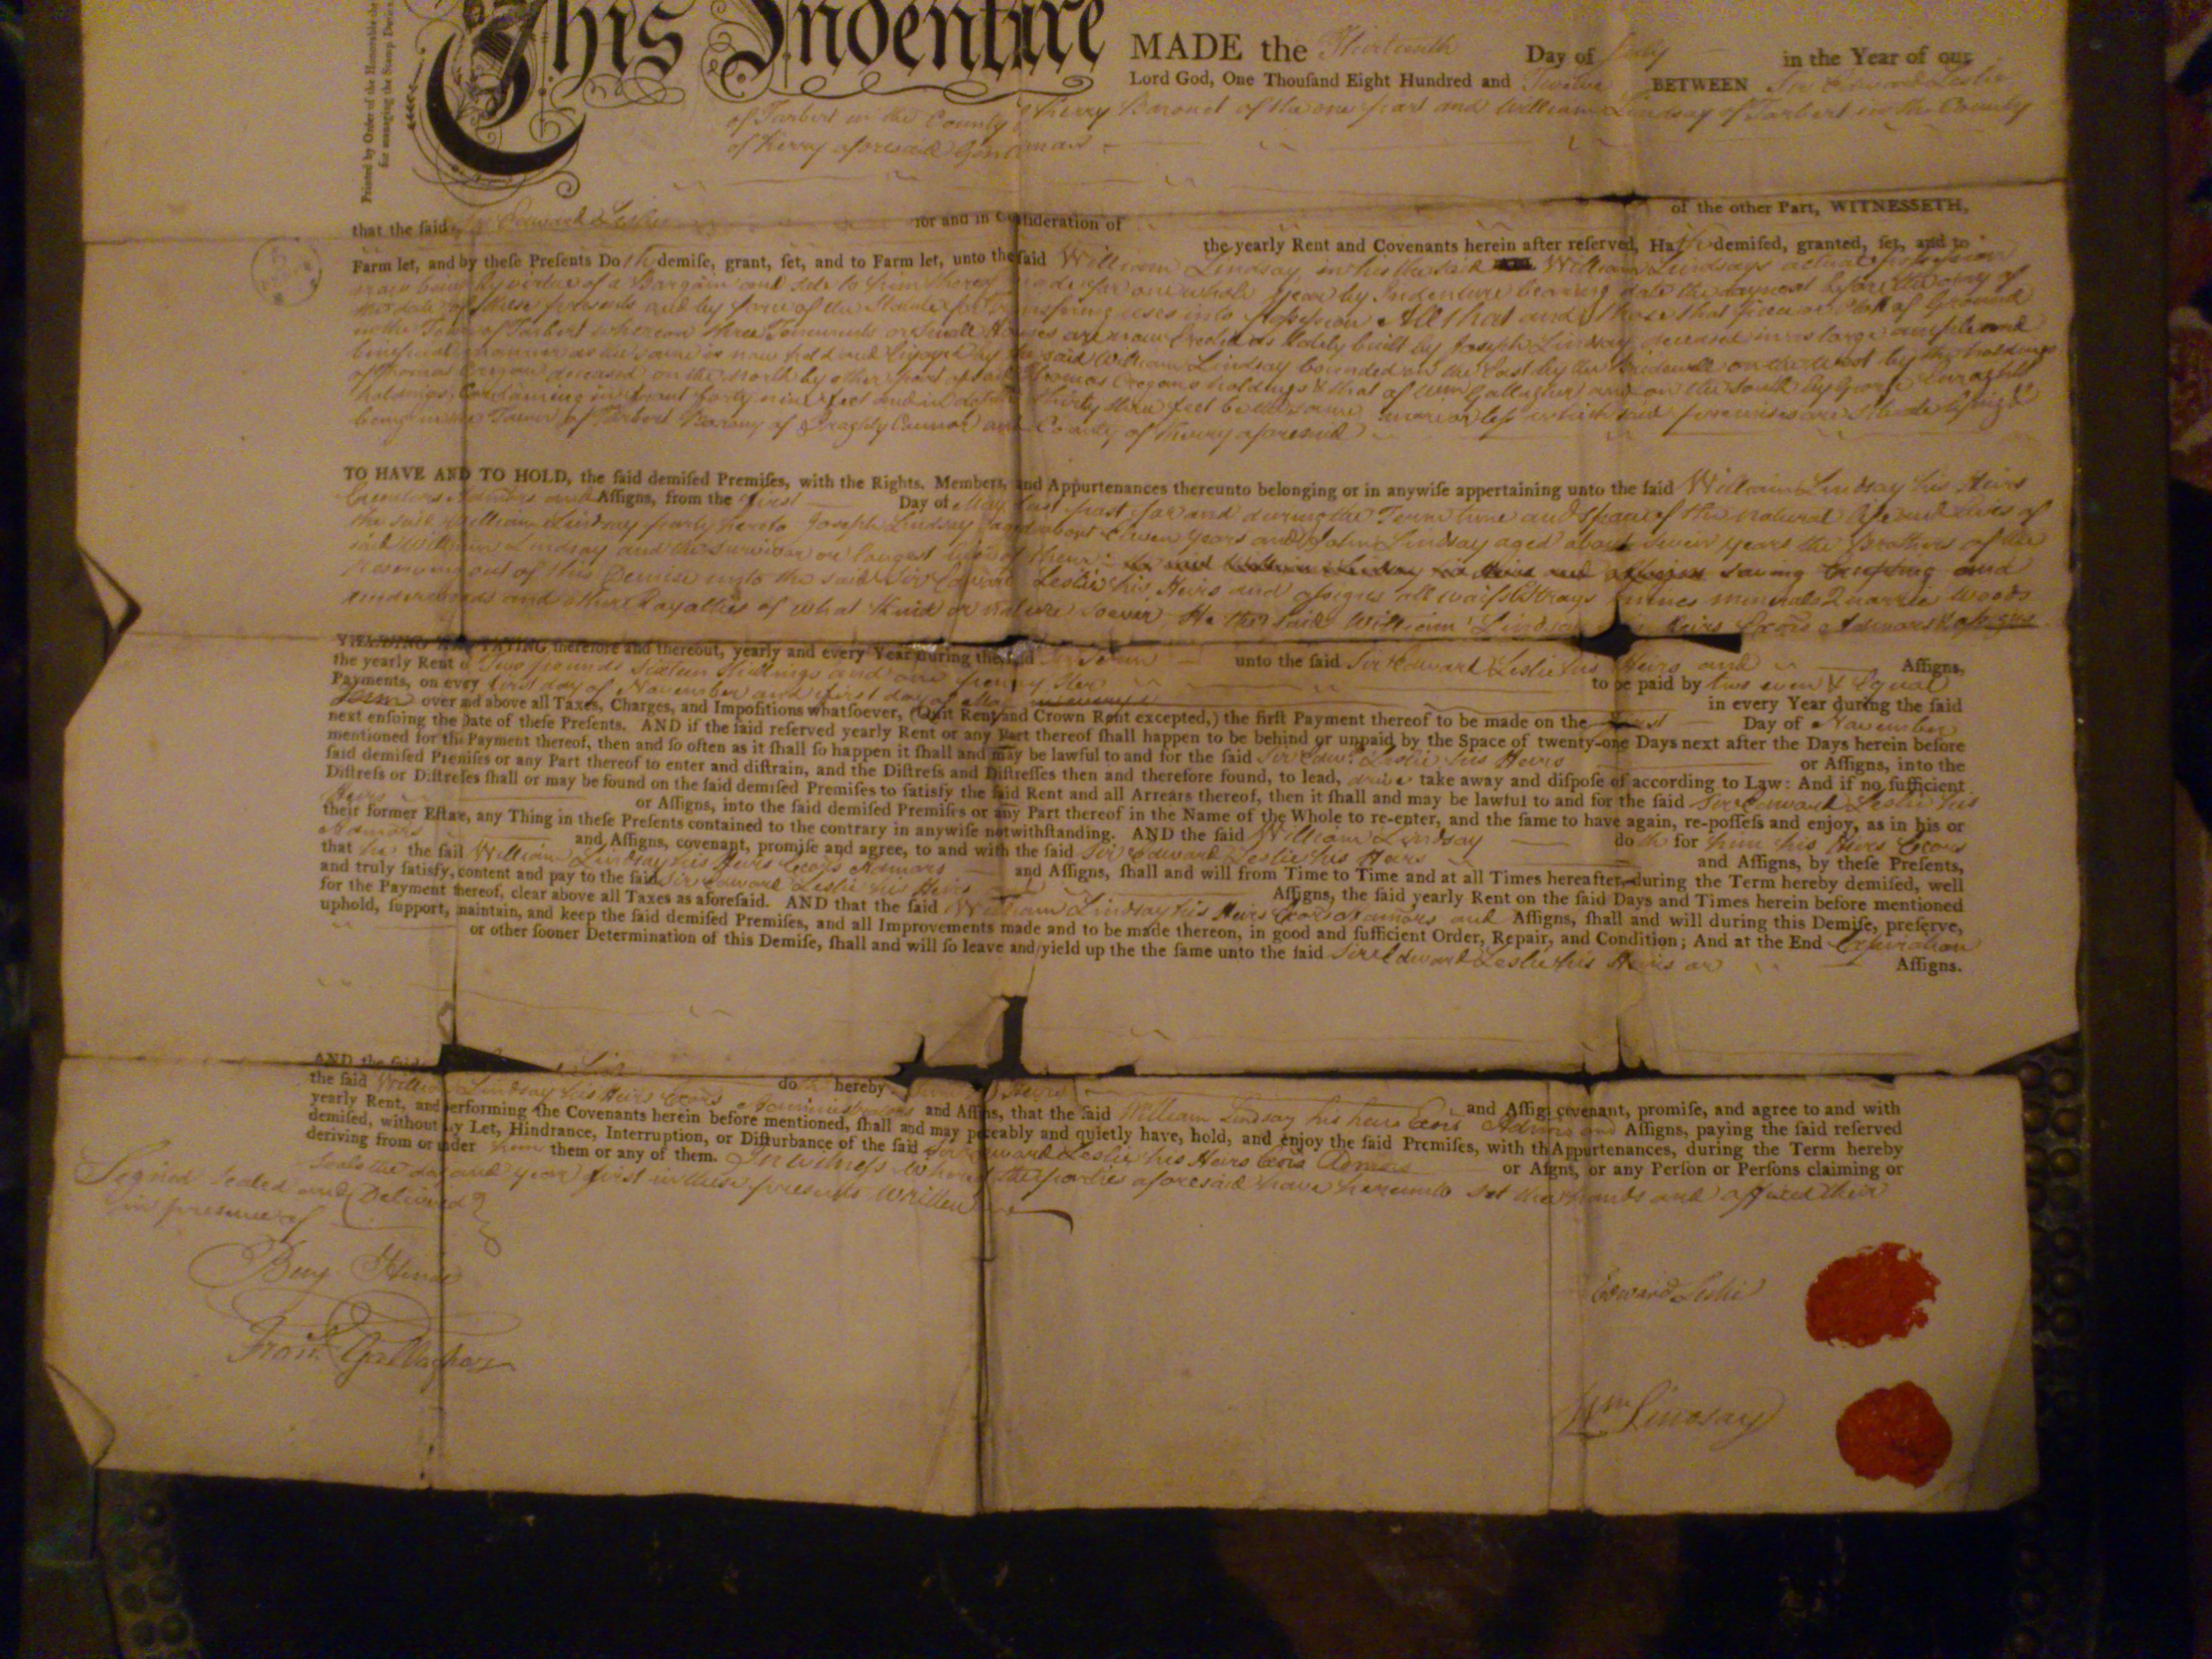 Printed by Order of the Honorable the
for managing the Stamp Duties
This Indenture MADE the Thirteenth Day of July in the Year of our
Lord God, One Thouſand Eight Hundred and Twelve BETWEEN Sir Edward Leslie
of Tarbert in the County of Kerry Baronet of the one part and William Lindsay of Tarbert in the County
of Kerry aforesaid Gentleman
of the other Part, WITNESSETH,
that the ſaid Sir Edward Leslie for and in Conſideration of
the yearly Rent and Covenants herein after reſerved, Hath demiſed, granted, ſet, and to
Farm let, and by theſe Preſents Doth demiſe, grant, ſet, and to Farm let, unto the ſaid William Lindsay, in his the said William Lindsays actual possession
now being by virtue of a Bargain and Sale to him thereof made for one whole year by Indenture bearing date the day next before the day of
the date of these presents and by force of the Statute for transferring uses into possession All that and those that piece or Plott of Ground
in the Town of Tarbert whereon three Tenements or Small Houses are now Erected as lately built by Joseph Lindsay deceased in as large ample and
beneficial manner as the same is now held and Enjoyed by the said William Lindsay bounded on the East by the Bridewell on the West by the holdings
of Thomas Cregan deceased on the North by other part of said Thomas Cregans holdings & that of Wm Gallagher and on the South by George
holdings Containing in front forty nine feet and in depth thirty three feet be the same more or less which said premises are Situate lying &
being in the Town of Tarbert Barony of Iraghty Connor and County of Kerry aforesaid
TO HAVE AND TO HOLD, the ſaid demiſed Premiſes, with the Rights, Members, and Appurtenances thereunto belonging or in anywiſe appertaining unto the ſaid William Lindsay his Heirs
Executors Admors and Aſſigns, from the First Day of May last past for and during the Term time and Space of the natural life and lives of
the said William Lindsay party hereto Joseph Lindsay aged about Eleven years and John Lindsay aged about seven years the Brothers of the
said William Lindsay and the survivor or longest liver of them saving Excepting and
reserving out of this Demise unto the said Sir Edward Leslie his Heirs and assigns all waifs Estrays mines minerals Quarries Woods
underwoods and other Royalties of what Kind or nature soever, He the said William Lindsay his Heirs Exors Admors & assigns
YIELDING AND PAYING therefore and thereout, yearly and every Year during the ſaid Term unto the ſaid Sir Edward Leslie his Heirs and Aſſigns,
the yearly Rent of Two pounds Sixteen Shillings and one penny Ster to be paid by two even & Equal
Payments, on every first day of November and first day of May in every Year during the ſaid
Term over and above all Taxes, Charges, and Impoſitions whatſoever, (Quit Rent and Crown Rent excepted,) the firſt Payment thereof to be made on the first Day of November
next enſuing the Date of theſe Preſents. AND if the ſaid reſerved yearly Rent or any Part thereof ſhall happen to be behind or unpaid by the Space of twenty-one Days next after the Days herein before
mentioned for the Payment thereof, then and ſo often as it ſhall ſo happen it ſhall and may be lawful to and for the ſaid Sir Edwd. Leslie his Heirs or Aſſigns, into the
ſaid demiſed Premiſes or any Part thereof to enter and diſtrain, and the Diſtreſs and Diſtreſſes then and therefore found, to lead, drive take away and diſpoſe of according to Law: And if no ſufficient
Diſtreſs or Diſtreſſes ſhall or may be found on the ſaid demiſed Premiſes to ſatisfy the ſaid Rent and all Arrears thereof, then it ſhall and may be lawful to and for the ſaid Sir Edward Leslie his
Heirs or Aſſigns, into the ſaid demiſed Premiſes or any Part thereof in the Name of the Whole to re-enter, and the ſame to have again, re-poſſeſs and enjoy, as in his or
their former Eſtate, any Thing in theſe Preſents contained to the contrary in anywiſe notwithſtanding. AND the ſaid William Lindsay doth for him his Heirs Exors
Admors and Aſſigns, covenant, promiſe and agree, to and with the ſaid Sir Edward Leslie his Heirs and Aſſigns, by theſe Preſents,
that he the ſaid William Lindsay his Heirs Exors Admors and Aſſigns, ſhall and will from Time to Time and at all Times hereafter, during the Term hereby demiſed, well
and truly ſatisfy, content and pay to the ſaid Sir Edward Leslie his Heirs Aſſigns, the ſaid yearly Rent on the ſaid Days and Times herein before mentioned
for the Payment thereof, clear above all Taxes as aforeſaid. AND that the ſaid William Lindsay his Heirs Exors Admors and Aſſigns, ſhall and will during this Demiſe, preſerve,
uphold, ſupport, maintain, and keep the ſaid demiſed Premiſes, and all Improvements made and to be made thereon, in good and ſufficient Order, Repair, and Condition; And at the End Expiration
or other ſooner Determination of this Demiſe, ſhall and will ſo leave and yield up the the ſame unto the ſaid Sir Edward Leslie his Heirs or Aſſigns.
AND the ſaid doth hereby Heirs and Aſſigns covenant, promiſe, and agree to and with
the ſaid William Lindsay his Heirs Exors Administrators and Aſſigns, that the ſaid William Lindsay his heirs Exors Admors and Aſſigns, paying the ſaid reſerved
yearly Rent, and performing the Covenants herein before mentioned, ſhall and may peaceably and quietly have, hold, and enjoy the ſaid Premiſes, with the Appurtenances, during the Term hereby
demiſed, without any Let, Hindrance, Interruption, or Diſturbance of the ſaid Sir Edward Leslie his Heirs Exors Admors or Aſſigns, or any Perſon or Perſons claiming or
deriving from or under him them or any of them. In witness whereof the parties aforesaid have hereunto set their hands and affixed their
Seals the day and year first in these presents written
Signed Sealed and Delivered
in presence of
Benj Hinde
Frans. Gallagher
Edward Leslie
Wm Lindsay